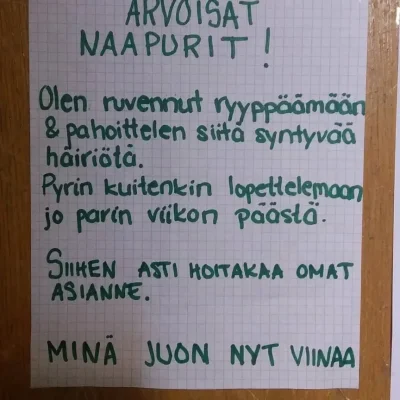 ARVOISAT
NAAPURIT!
Olen ruvennut ryyppäämään
& pahoittelen siitä syntyvää
häiriötä.
Pyrin kuitenkin lopettelemaan
jo parin viikon päästä.
SIIHEN ASTI HOITAKAA OMAT
ASIANNE.
MINÄ JUON NYT VIINAA